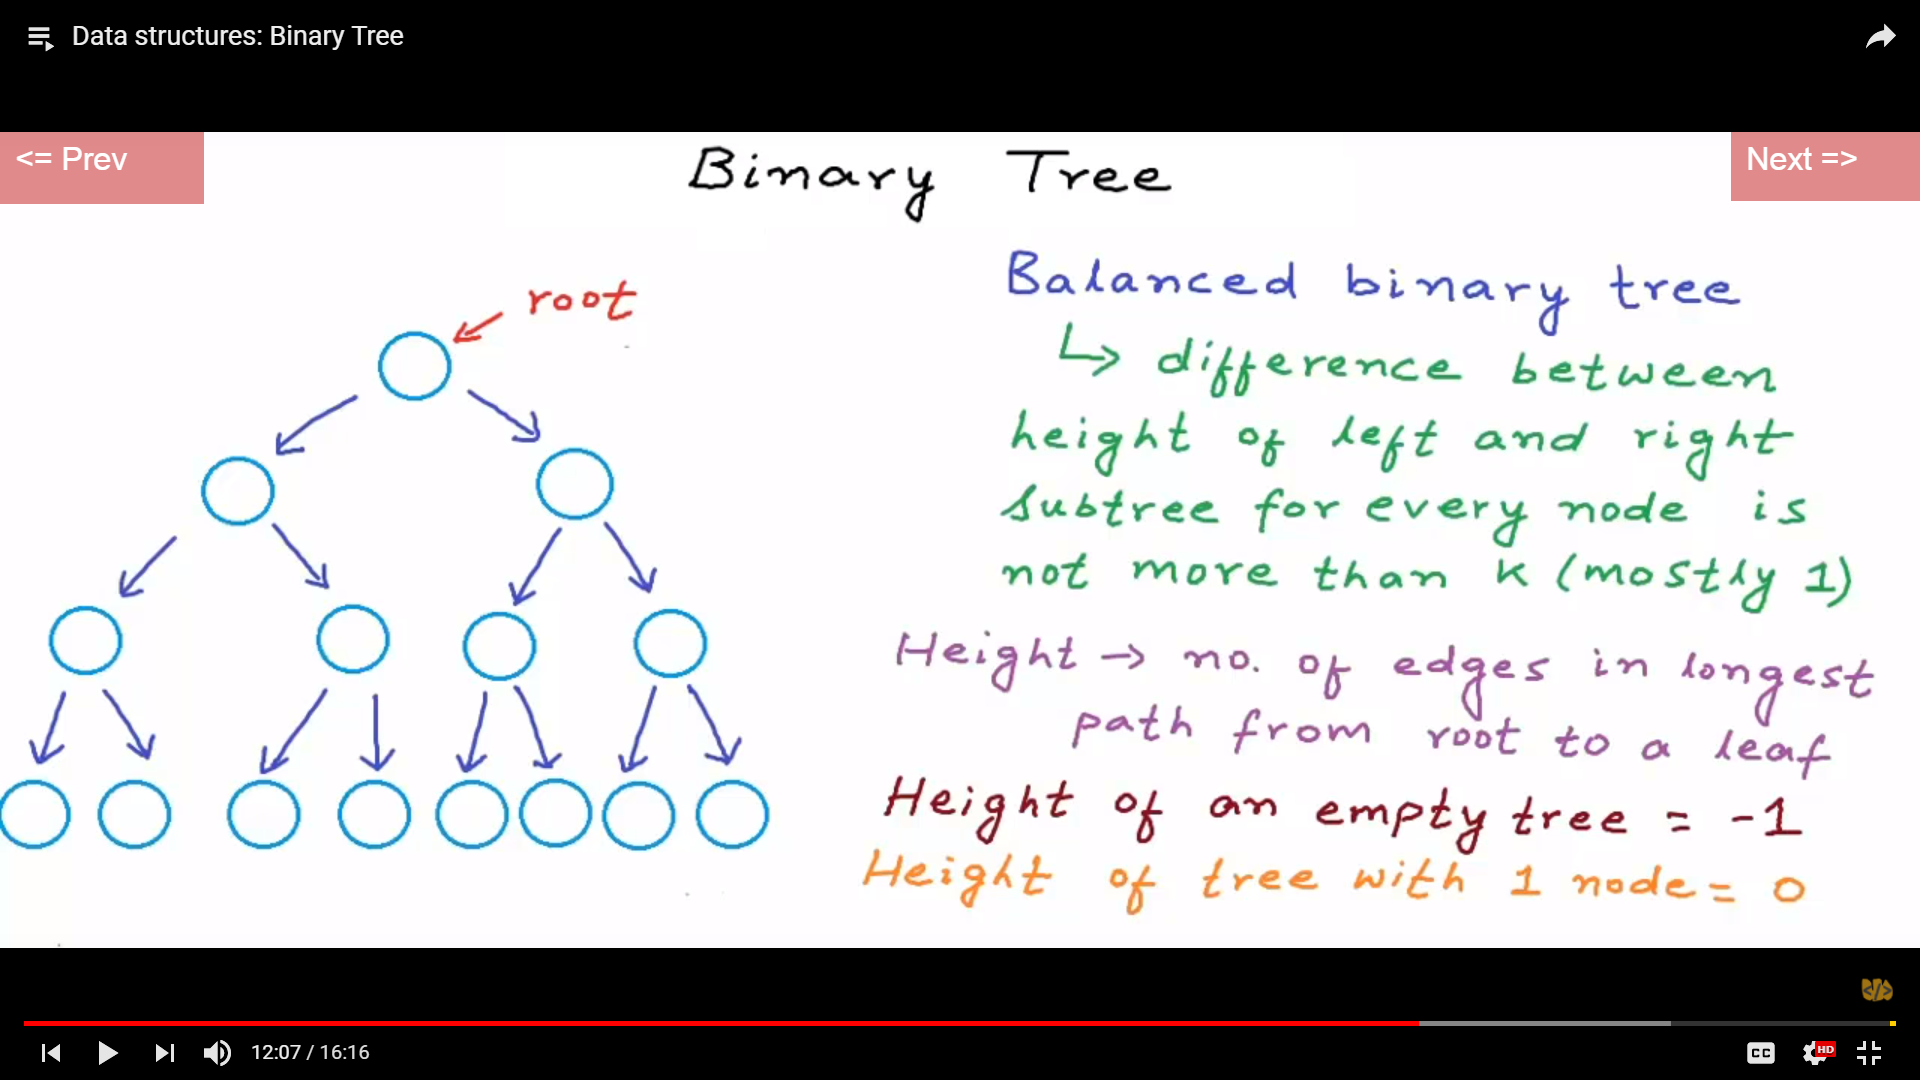 Data structures: Binary Tree
<= Prev
Next =>
Binary Tree
root
Balanced binary tree
↳ difference between
height of left and right
subtree for every node is
not more than k (mostly 1)
Height → no. of edges in longest
path from root to a leaf
Height of an empty tree = -1
Height of tree with 1 node = 0
</>
12:07 / 16:16
CC
HD